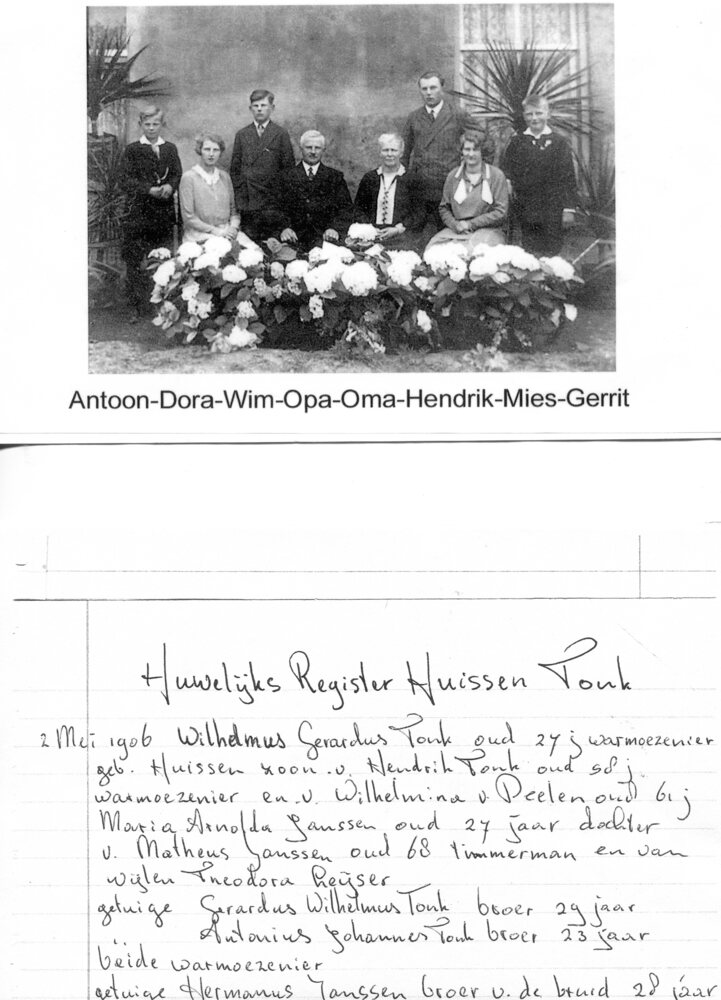 Antoon-Dora-Wim-Opa-Oma-Hendrik-Mies-Gerrit
Huwelijks Register Huissen Tonk
2 Mei 1906 Wilhelmus Gerardus Tonk oud 27 j warmoezenier
geb. Huissen zoon v. Hendrik Tonk oud 58 j.
warmoezenier en v. Wilhelmina v Deelen oud 61 j
Maria Arnolda Janssen oud 27 jaar dochter
v. Matheus Janssen oud 68 timmerman en van
wijlen Theodora Heijser
getuige Gerardus Wilhelmus Tonk broer 29 jaar
,, Antonius Johannes Tonk broer 23 jaar
beide warmoezenier
getuige Hermanus Janssen broer v. de bruid 28 jaar